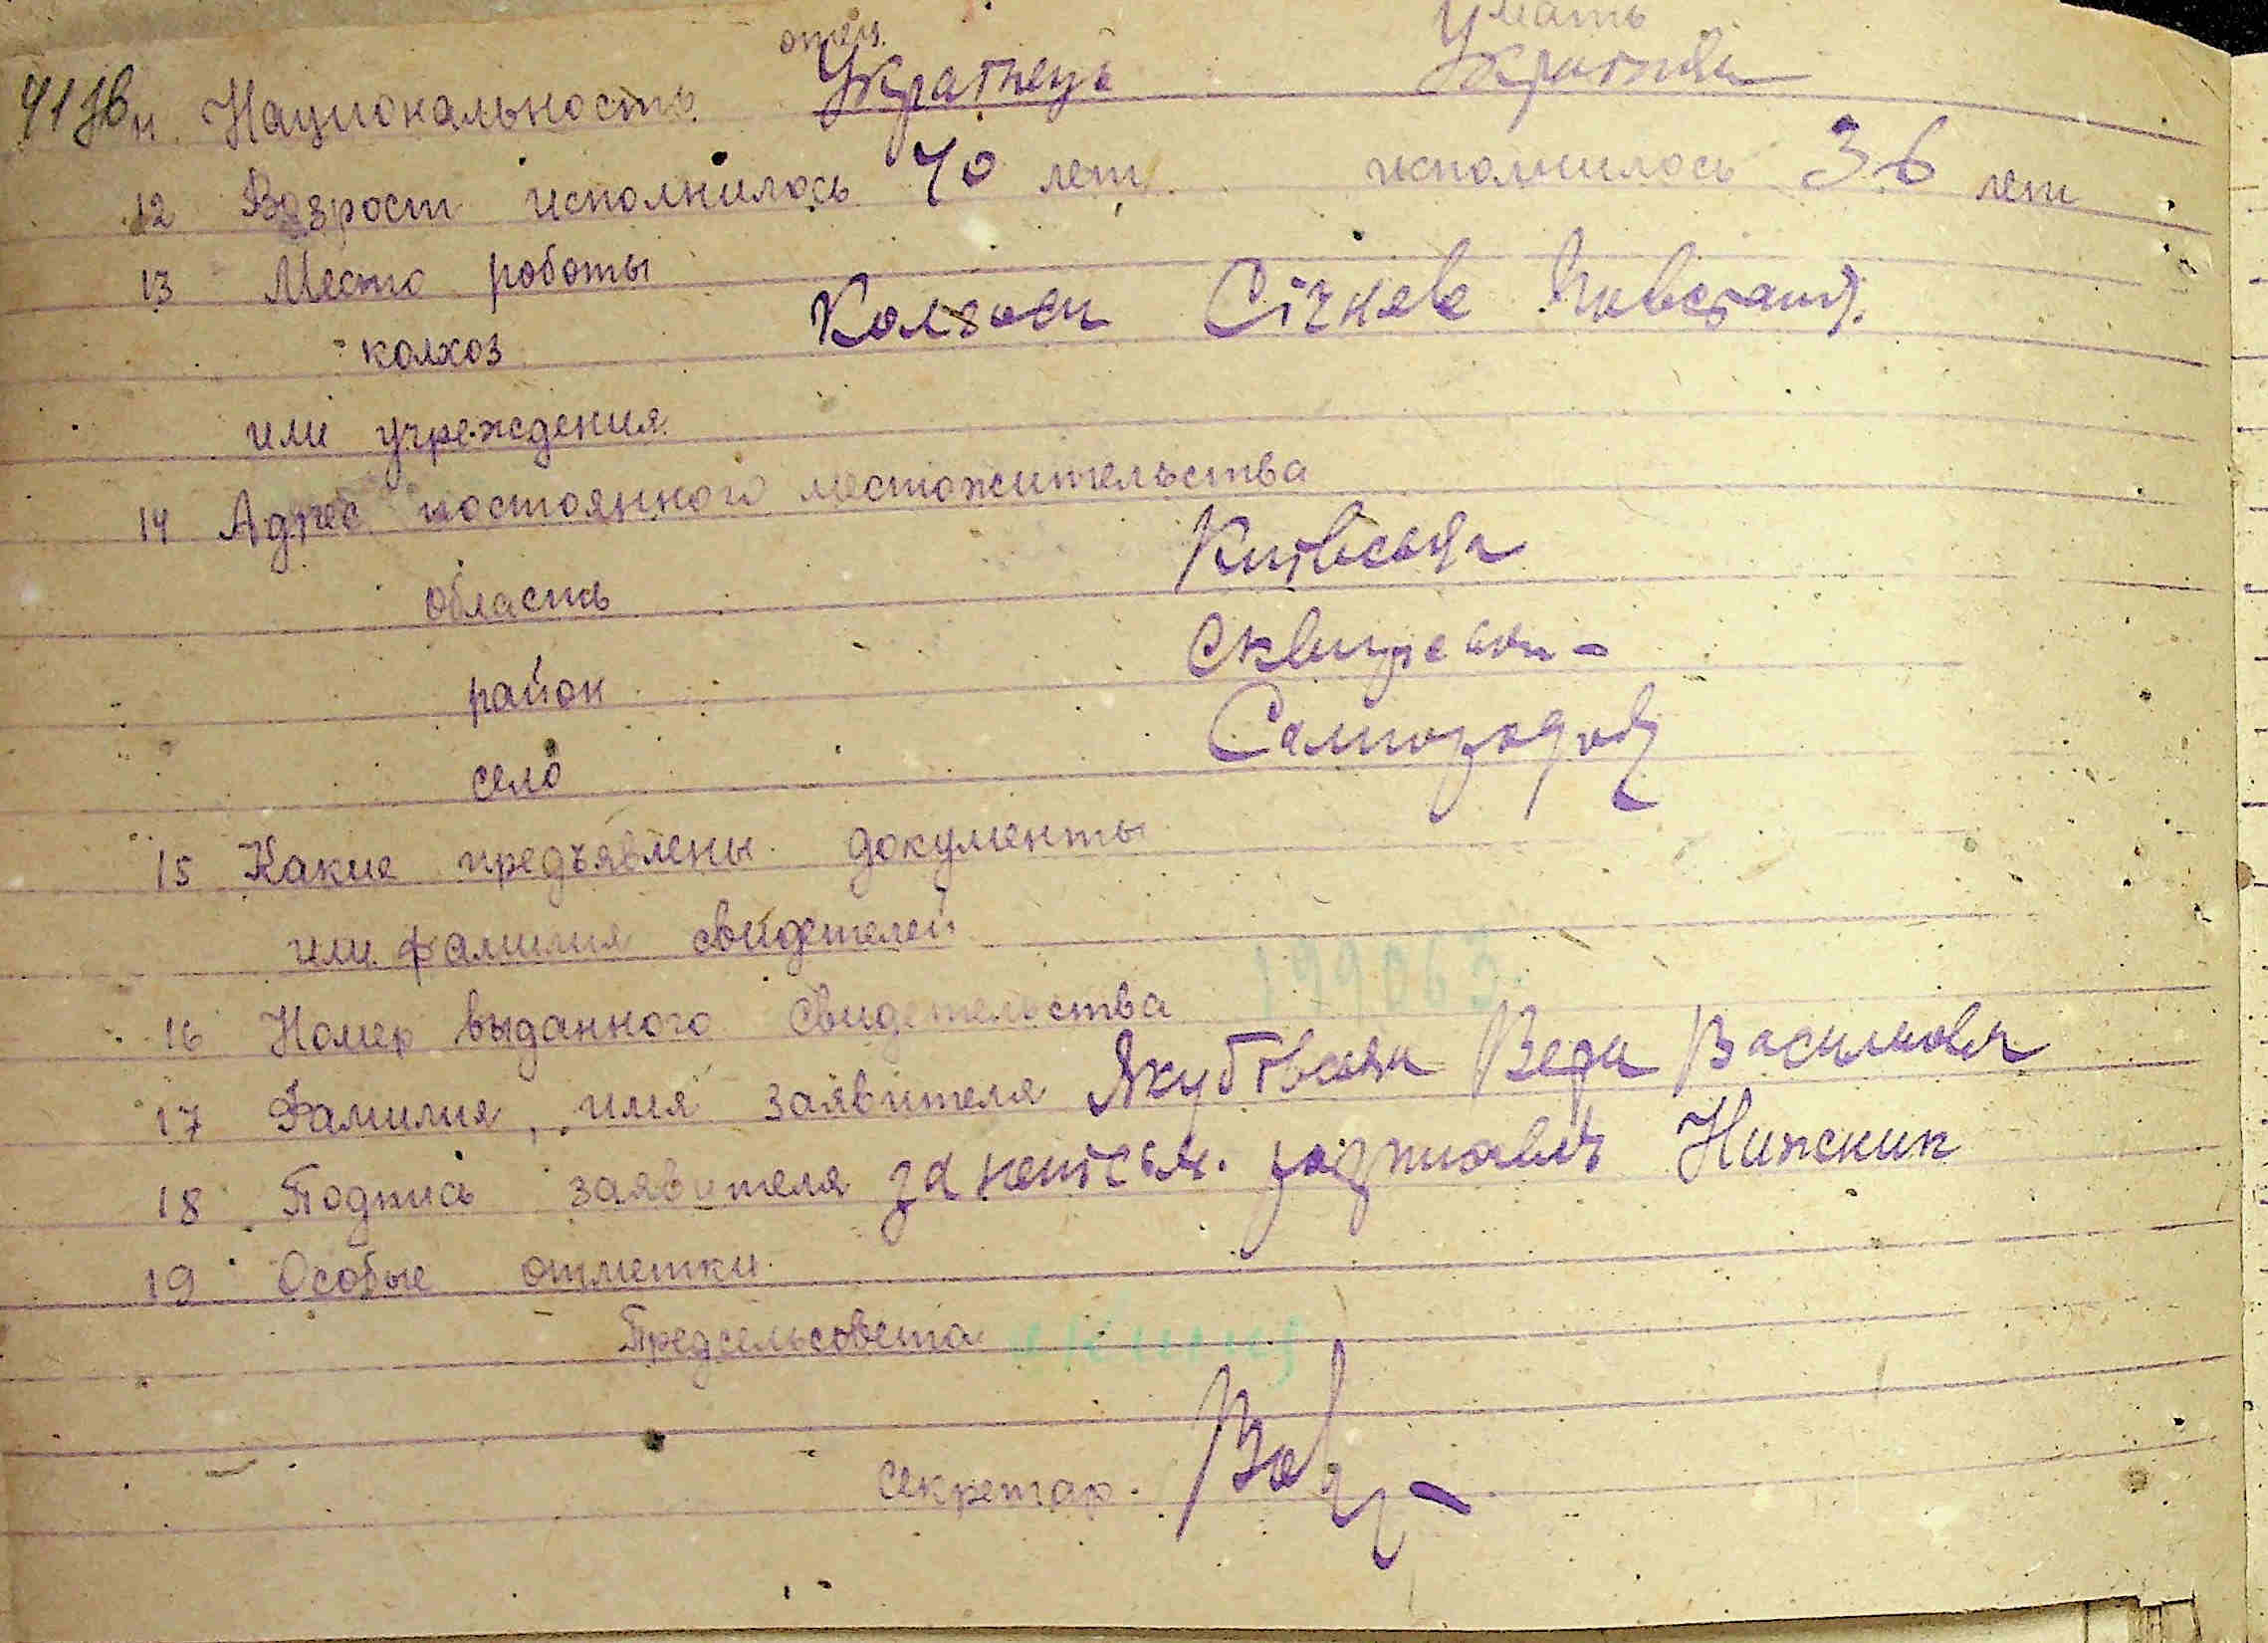 отец мать
41 зв 11 Национальность Українець Українка
12 Возрост исполнилось 40 лет исполнилось 36 лет
13 Место роботы
колхоз Колгосп Січневе Повстання
или учреждения
14 Адрес постоянного местожительства
область Київська
район Сквирськ-
село Самгородок
15 Какие предъявлены документы
или фамилия свидетелей
16 Номер выданного свидетельства 199063
17 Фамилия, имя заявителя Якубівська Вера Василівна
18 Подпись заявителя за неписьм.
19 Особые отметки
Предсельсовета
секретар.